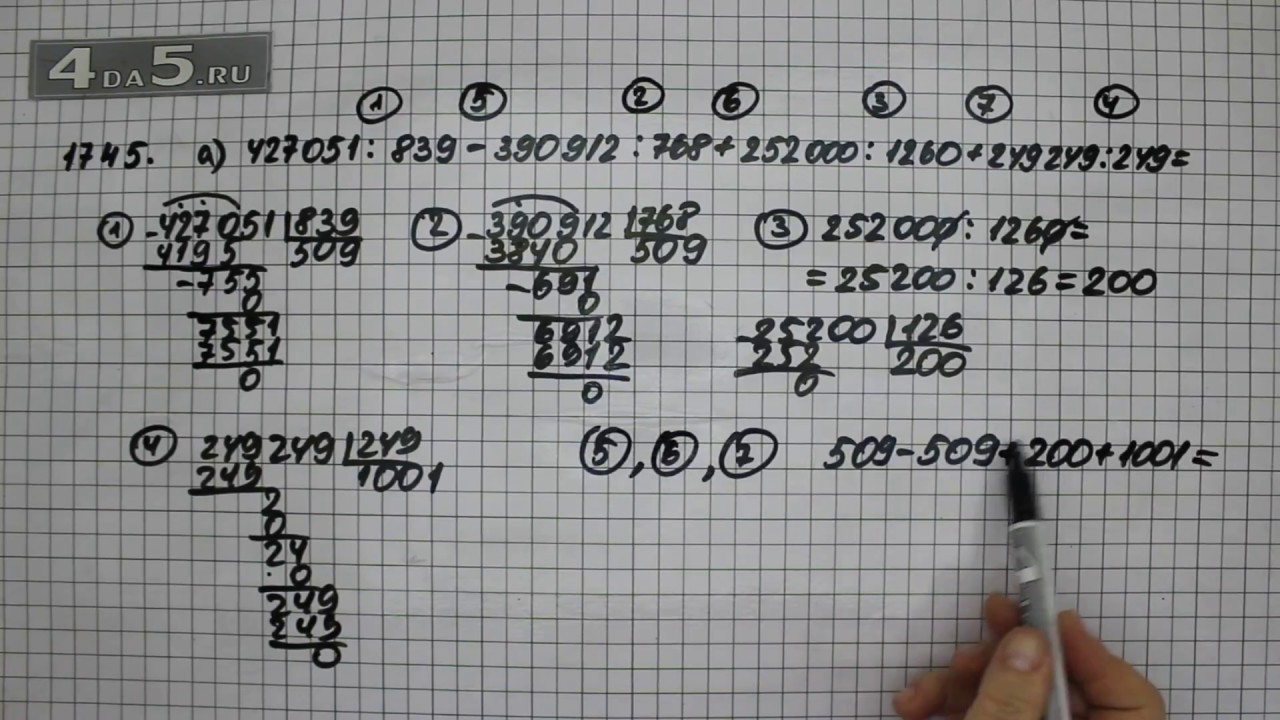 4DA5.RU
1 5 2 6 3 7 4
1745. а) 427051 : 839 - 390912 : 768 + 252000 : 1260 + 249249 : 249 =
1 427051 839 2 390912 768 3 252000 : 1260 =
4195 509 3840 509 = 25200 : 126 = 200
-755 -691
0 0
7551 6912 -25200 126
7551 6912 252 200
0 0 0
4 249249 249 5, 6, 7 509 - 509 + 200 + 1001 =
249 1001
2
0
24
0
249
249
0